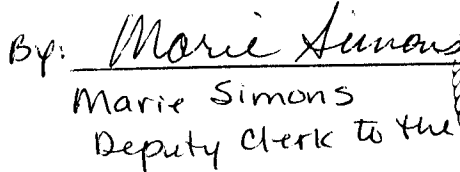 By: Marie Simons
Marie Simons
Deputy Clerk to the